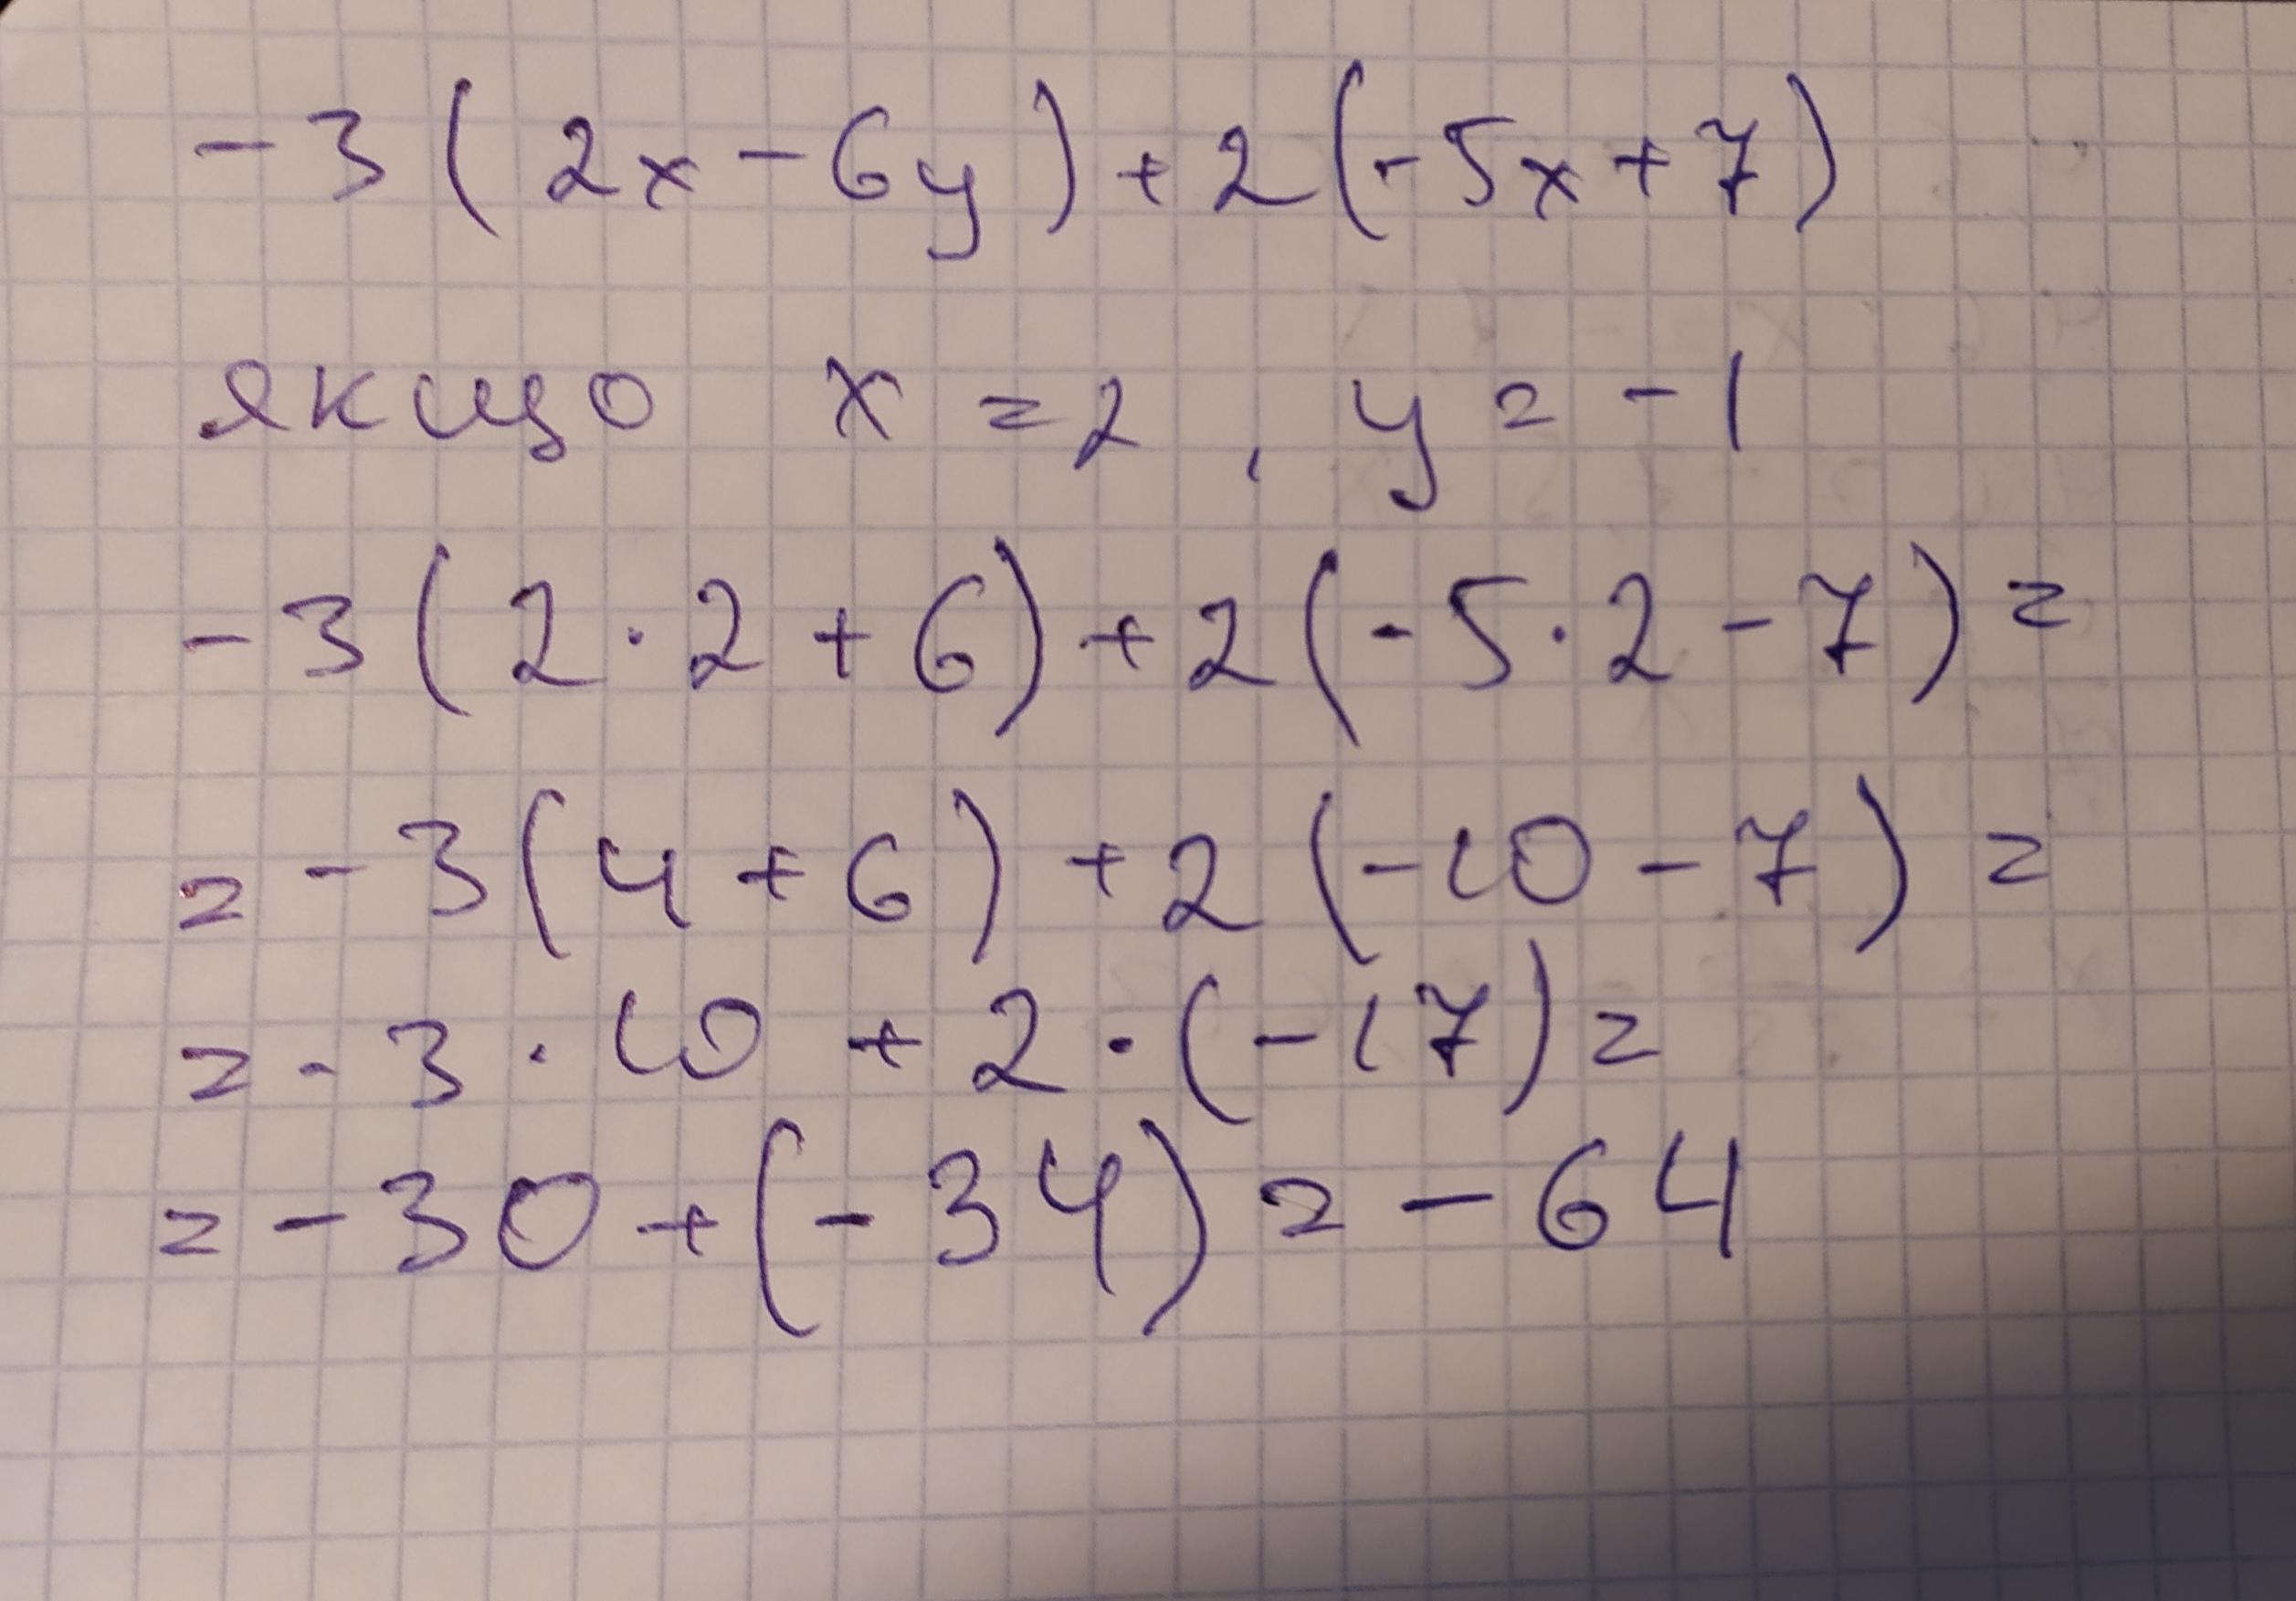 -3(2x-6y)+2(-5x+7)
якщо x=2, y=-1
-3(2·2+6)+2(-5·2-7)=
=-3(4+6)+2(-10-7)=
=-3·10+2·(-17)=
=-30+(-34)=-64